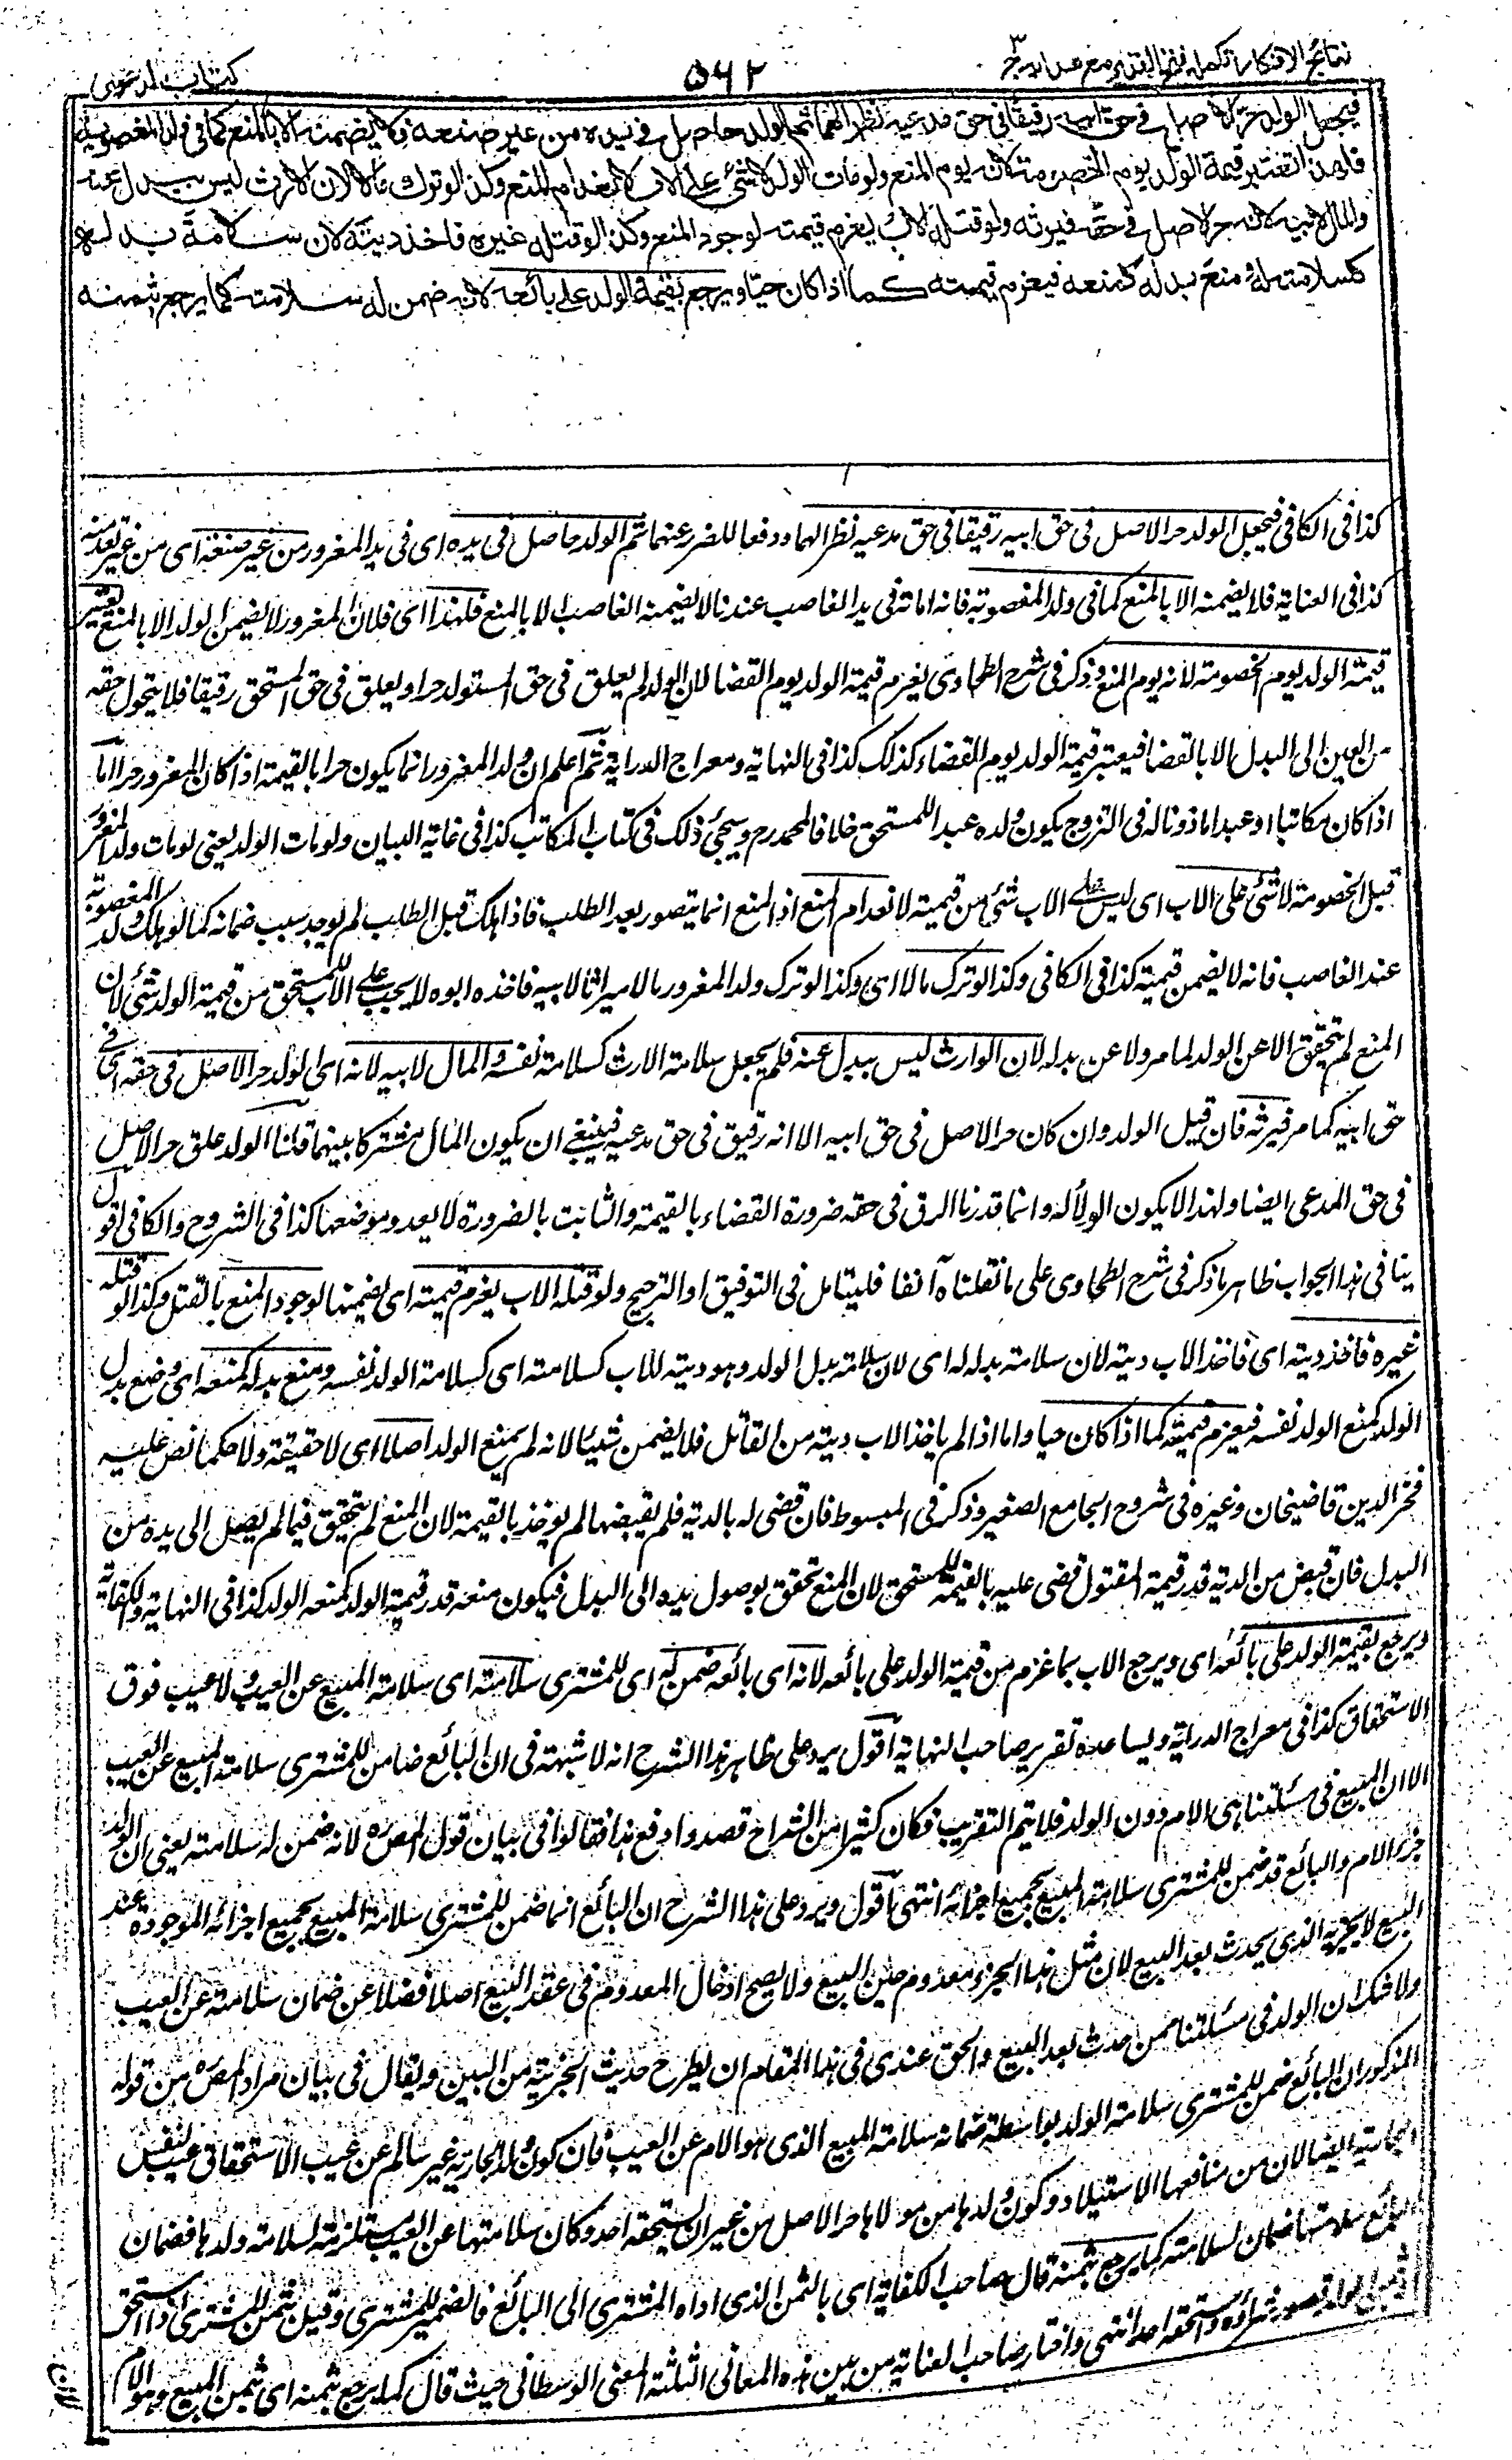 نتائج الافكار تكملہ فتح القدير مع هدايہ ج ٣
۵۶۲
كتاب الدعوى
فيجعل الولد حر الاصل في حق ابيه رقيقا في حق مدعيه نظرا لهما ثم الولد حاصل في يده من غير صنعه فلا يضمنه الا بالمنع كما في ولد المغصوبة
فلهذا تعتبر قيمة الولد يوم الخصومة لانه يوم المنع ولو مات الولد لا شئ على الاب لانعدام المنع وكذا لو ترك مالا لان الارث ليس ببدل عنه
والمال لابيه لانه حر الاصل في حقه فيرثه ولو قتله الاب يغرم قيمته لوجود المنع وكذا لو قتله غيره فاخذ ديته لان سلامة بدله له
كسلامته له ومنع بدله كمنعه فيغرم قيمته كما اذا كان حيا ويرجع بقيمة الولد على بائعه لانه ضمن له سلامته كما يرجع بثمنه
كذا فى الكافى فيجعل الولد حر الاصل فى حق ابيه رقيقا فى حق مدعيه نظرا لهما ودفعا للضرر عنهما ثم الولد حاصل فى يده اى فى يد المغرور من غير صنعه اى من غير تعد منه
كذا فى العناية فلا يضمنه الا بالمنع كما فى ولد المغصوبة فانه امانة فى يد الغاصب عندنا لا يضمنه الغاصب الا بالمنع فلهذا اى فلان المغرور لا يضمن الولد الا بالمنع تعتبر
قيمة الولد يوم الخصومة لانه يوم المنع وذكر فى شرح الطحاوى يغرم قيمة الولد يوم القضا لان الولد لم يعلق فى حق المستولد حرا ويعلق فى حق المستحق رقيقا فلا يتحول حقه
من العين الى البدل الا بالقضا فيعتبر قيمة الولد يوم القضاء كذلك كذا فى النهاية ومعراج الدراية ثم اعلم ان ولد المغرور انما يكون حرا بالقيمة اذا كان المغرور حرا اما
اذا كان مكاتبا او عبدا ماذونا له فى التزوج يكون ولده عبدا للمستحق خلافا لمحمد رح وسيجئ ذلك فى كتاب المكاتب كذا فى غاية البيان ولو مات الولد يعنى لو مات ولد المغرور
قبل الخصومة لا شئ على الاب اى ليس على الاب شئ من قيمته لانعدام المنع اذ المنع انما يتصور بعد الطلب فاذا هلك قبل الطلب لم يوجد سبب ضمانه كما لو هلك ولد المغصوبة
عند الغاصب فانه لا يضمن قيمته كذا فى الكافى وكذا لو ترك مالا اى وكذا لو ترك ولد المغرور مالا ميراثا لابيه فاخذه ابوه لا يجب على الاب للمستحق من قيمة الولد شئ لان
المنع لم يتحقق لا عن الولد لما مر ولا عن بدله لان الوارث ليس ببدل عنه فلم يجعل سلامة الارث كسلامة نفسه والمال لابيه لانه اى الولد حر الاصل فى حقه اى فى
حق ابيه كما مر فيرثه فان قيل الولد وان كان حر الاصل فى حق ابيه الا انه رقيق فى حق مدعيه فينبغى ان يكون المال مشتركا بينهما قلنا الولد علق حر الاصل
فى حق المدعى ايضا ولهذا لا يكون الولأ له وانما قدرنا الرق فى حقه ضرورة القضاء بالقيمة والثابت بالضرورة لا يعدو موضعها كذا فى الشروح والكافى اقول
ينافى هذا الجواب ظاهر ما ذكر فى شرح الطحاوى على ما نقلناه آنفا فليتامل فى التوفيق او الترجيح ولو قتله الاب يغرم قيمته اى يضمنها لوجود المنع بالقتل وكذا لو قتله
غيره فاخذ ديته اى فاخذ الاب ديته لان سلامة بدله له اى لان سلامة بدل الولد وهو ديته للاب كسلامته اى كسلامة الولد نفسه ومنع بدله كمنعه اى ومنع بدل
الولد كمنع الولد نفسه فيغرم قيمته كما اذا كان حيا واما اذا لم ياخذ الاب ديته من القاتل فلا يضمن شيئا لانه لم يمنع الولد اصلا اى لا حقيقة ولا حكما نص عليه
فخر الدين قاضيخان وغيره فى شروح الجامع الصغير وذكر فى المبسوط فان قضى له بالدية فلم يقبضها لم يوخذ بالقيمة لان المنع لم يتحقق فيما لم يصل الى يده من
البدل فان قبض من الدية قدر قيمة المقتول قضى عليه بالقيمة للمستحق لان المنع تحقق بوصول يده الى البدل فيكون منعه قدر قيمة الولد كمنعه الولد كذا فى النهاية والكفاية
ويرجع بقيمة الولد على بائعه اى ويرجع الاب بما غرم من قيمة الولد على بائعه لانه اى بائعه ضمن له اى للمشترى سلامته اى سلامة المبيع عن العيب ولا عيب فوق
الاستحقاق كذا فى معراج الدراية ويساعده تقرير صاحب النهاية اقول يرد على ظاهر هذا الشرح انه لا شبهة فى ان البائع ضامن للمشترى سلامة المبيع عن العيب
الا ان المبيع فى مسئلتنا هى الام دون الولد فلا يتم التقريب فكان كثيرا من الشراح قصدوا دفع هذا فقالوا فى بيان قول المصره لانه ضمن له سلامته يعنى ان الولد
جزء الام والبائع قد ضمن للمشترى سلامة المبيع بجميع اجزائه انتهى اقول ويرد على هذا الشرح ان البائع انما ضمن للمشترى سلامة المبيع بجميع اجزائه الموجودة عند
البيع لا بجزئه الذى يحدث بعد البيع لان مثل هذا الجزء معدوم حين البيع ولا يصح ادخال المعدوم فى عقد البيع اصلا فضلا عن ضمان سلامته عن العيب
ولا شك ان الولد فى مسئلتنا ممن حدث بعد البيع والحق عندى فى هذا المقام ان يطرح حديث الجزئية من البين ويقال فى بيان مراد المصره من قوله
المذكور ان البائع ضمن للمشترى سلامة الولد بواسطة ضمانه سلامة المبيع الذى هو الام عن العيب فان كون ولد الجارية غير سالم عن عيب الاستحقاق عيب لنفس
الجارية ايضا لان من منافعها الاستيلاد وكون ولدها من مولاها حر الاصل من غير ان يستحقه احد وكان سلامتها عن العيب مستلزمة لسلامة ولدها فضمان
البائع سلامتها ضمان لسلامته كما يرجع بثمنه قال صاحب الكفاية اى بالثمن الذى اداه المشترى الى البائع فالضمير للمشترى وقيل بثمن المشترى اذا استحق
واستحقه احد انتهى واختار صاحب العناية من بين هذه المعانى الثلثة المعنى الوسطانى حيث قال كما يرجع بثمنه اى بثمن المبيع وهو الام